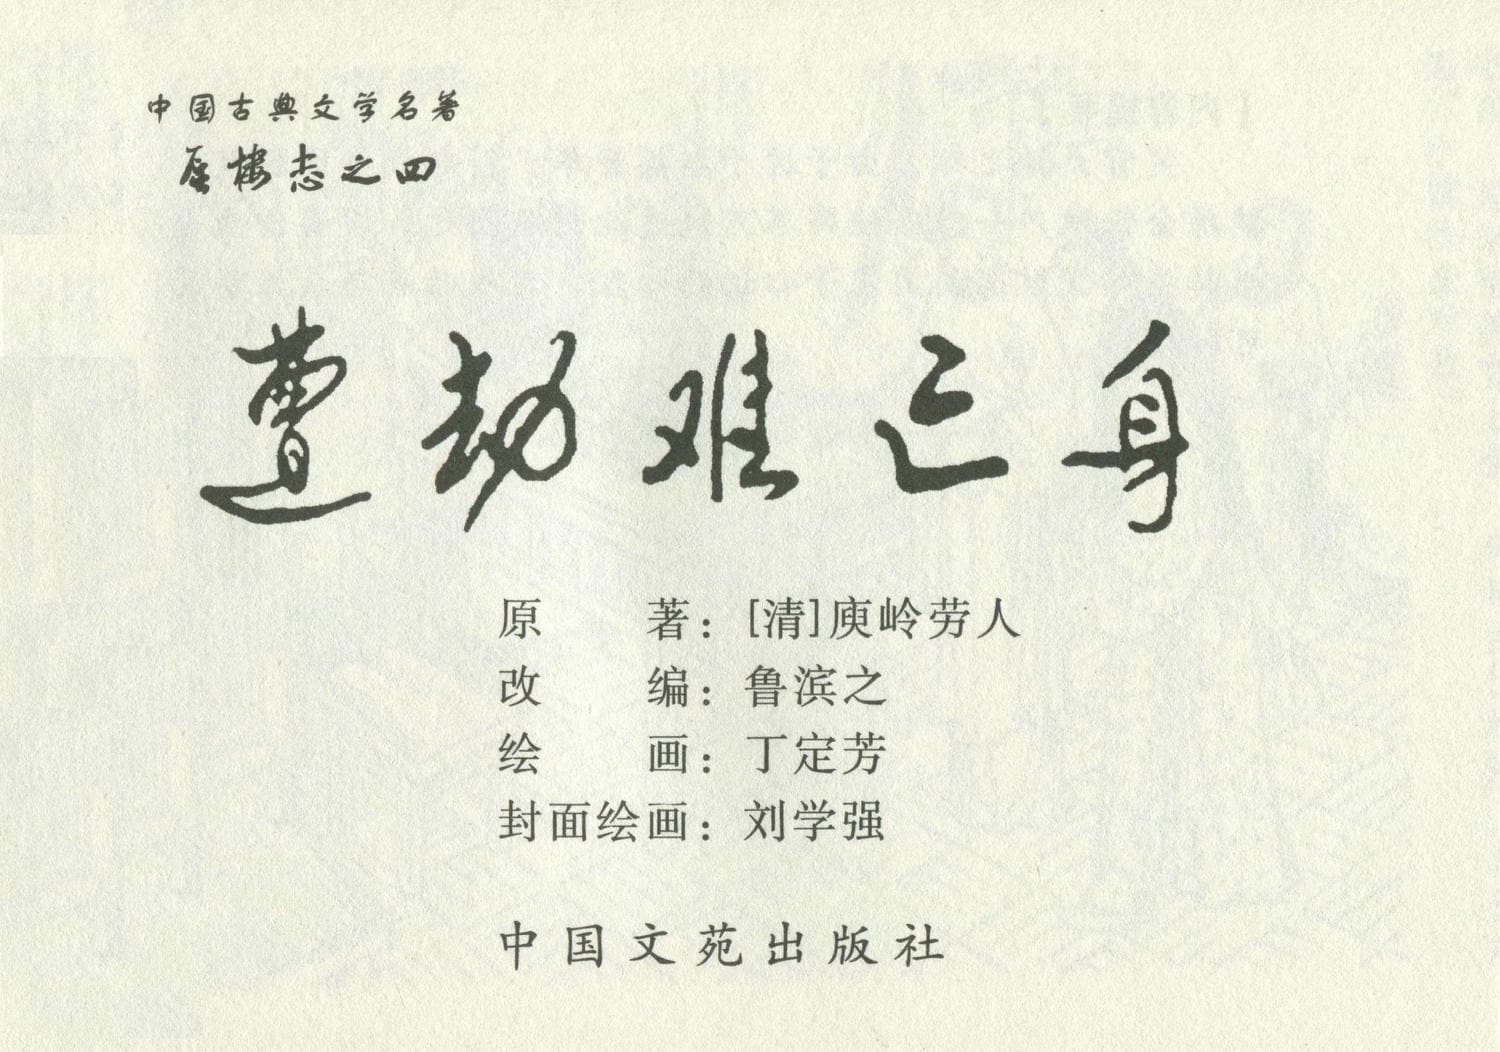 中国古典文学名著
蜃楼志之四
遭劫难亡身
原著：[清]庾岭劳人
改编：鲁滨之
绘画：丁定芳
封面绘画：刘学强
中国文苑出版社